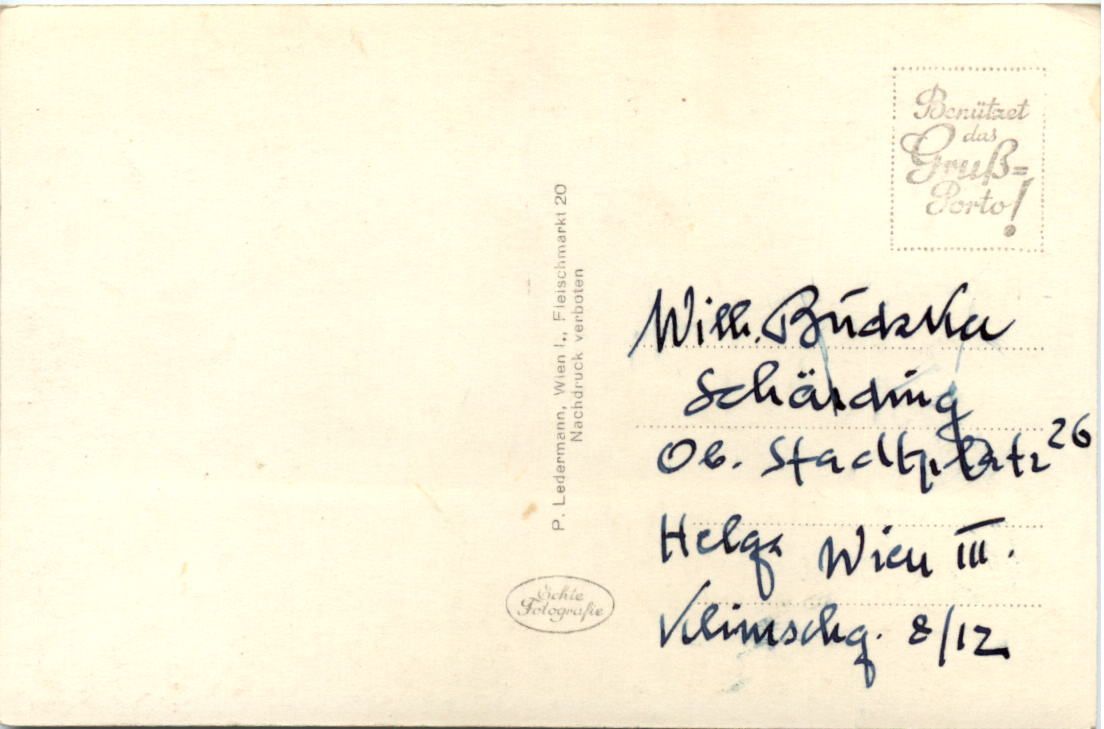 Benützet
das
Gruß=
Porto!
P. Ledermann, Wien I., Fleischmarkt 20
Nachdruck verboten
Willi. Budzka
Schärding
Ob. Stadtplatz 26
Helga Wien III.
Klimschg. 8/12
Echte
Fotografie